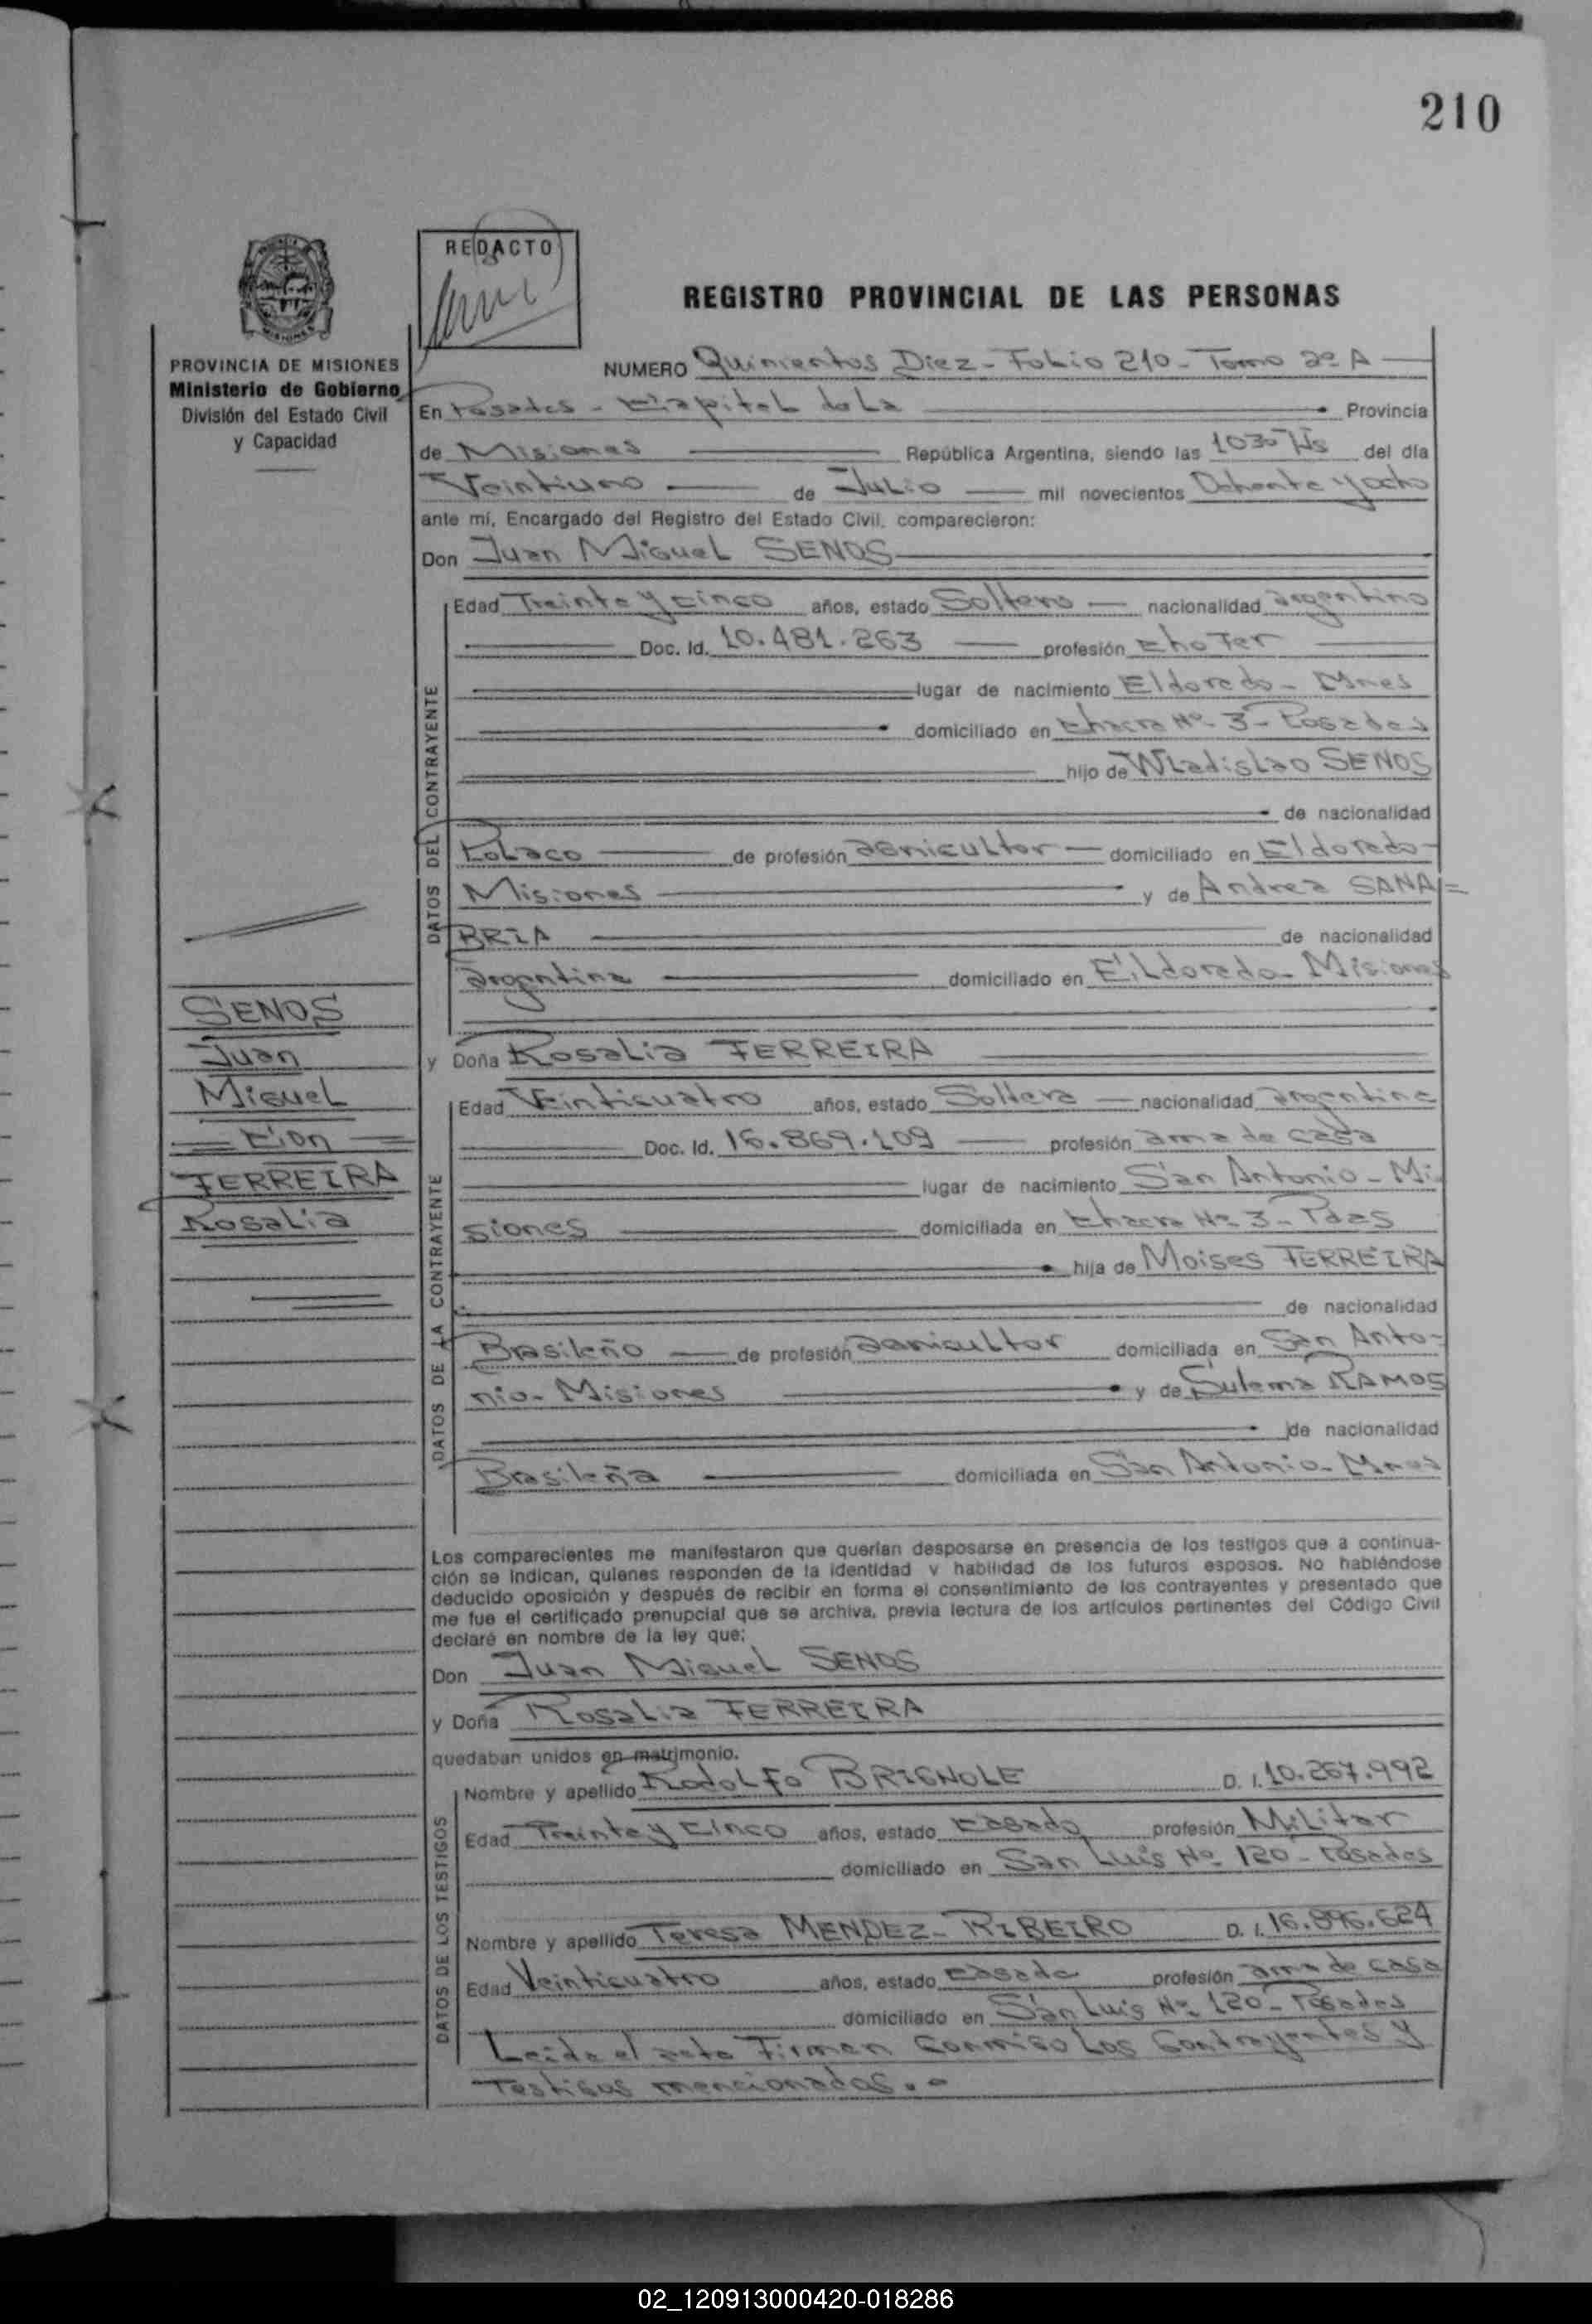 210
REDACTO
REGISTRO PROVINCIAL DE LAS PERSONAS
PROVINCIA DE MISIONES
Ministerio de Gobierno
División del Estado Civil
y Capacidad
NUMERO Quinientos Diez - Folio 210 - Tomo 2º A
En Posadas - Capital de la Provincia
de Misiones República Argentina, siendo las 1030 Hs del día
Veintiuno de Julio mil novecientos Ochenta y ocho
ante mí, Encargado del Registro del Estado Civil, comparecieron:
Don Juan Miguel SENOS
DATOS DEL CONTRAYENTE
Edad Treinta y cinco años, estado Soltero nacionalidad argentino
Doc. Id. 10.481.263 profesión Chofer
lugar de nacimiento Eldorado - Mnes
domiciliado en Chacra Nº 3 - Posadas
hijo de Wladislao SENOS
de nacionalidad
Polaco de profesión agricultor domiciliado en Eldorado -
Misiones y de Andrea SANA=
BRIA de nacionalidad
argentina domiciliado en Eldorado - Misiones
SENOS
Juan
Miguel
Con
FERREIRA
Rosalia
y Doña Rosalia FERREIRA
DATOS DE LA CONTRAYENTE
Edad Veinticuatro años, estado Soltera nacionalidad argentina
Doc. Id. 16.869.109 profesión ama de casa
lugar de nacimiento San Antonio - Mi
siones domiciliada en Chacra Nº 3 - Pdas
hija de Moises FERREIRA
de nacionalidad
Brasileño de profesión agricultor domiciliada en San Anto-
nio - Misiones y de Sulema RAMOS
de nacionalidad
Brasileña domiciliada en San Antonio - Mnes
Los comparecientes me manifestaron que querían desposarse en presencia de los testigos que a continua-
ción se indican, quienes responden de la identidad y habilidad de los futuros esposos. No habiéndose
deducido oposición y después de recibir en forma el consentimiento de los contrayentes y presentado que
me fue el certificado prenupcial que se archiva, previa lectura de los artículos pertinentes del Código Civil
declaré en nombre de la ley que:
Don Juan Miguel SENOS
y Doña Rosalia FERREIRA
quedaban unidos en matrimonio.
DATOS DE LOS TESTIGOS
Nombre y apellido Rodolfo BRIGNOLE D. I. 10.267.992
Edad Treinta y Cinco años, estado Casado profesión Militar
domiciliado en San Luis Nº 120 - Posadas
Nombre y apellido Teresa MENDEZ - RIBEIRO D. I. 16.896.624
Edad Veinticuatro años, estado Casada profesión ama de casa
domiciliado en San Luis Nº 120 - Posadas
Leida el acta Firman Conmigo Los Contrayentes y
Testigos mencionados.-
02_120913000420-018286